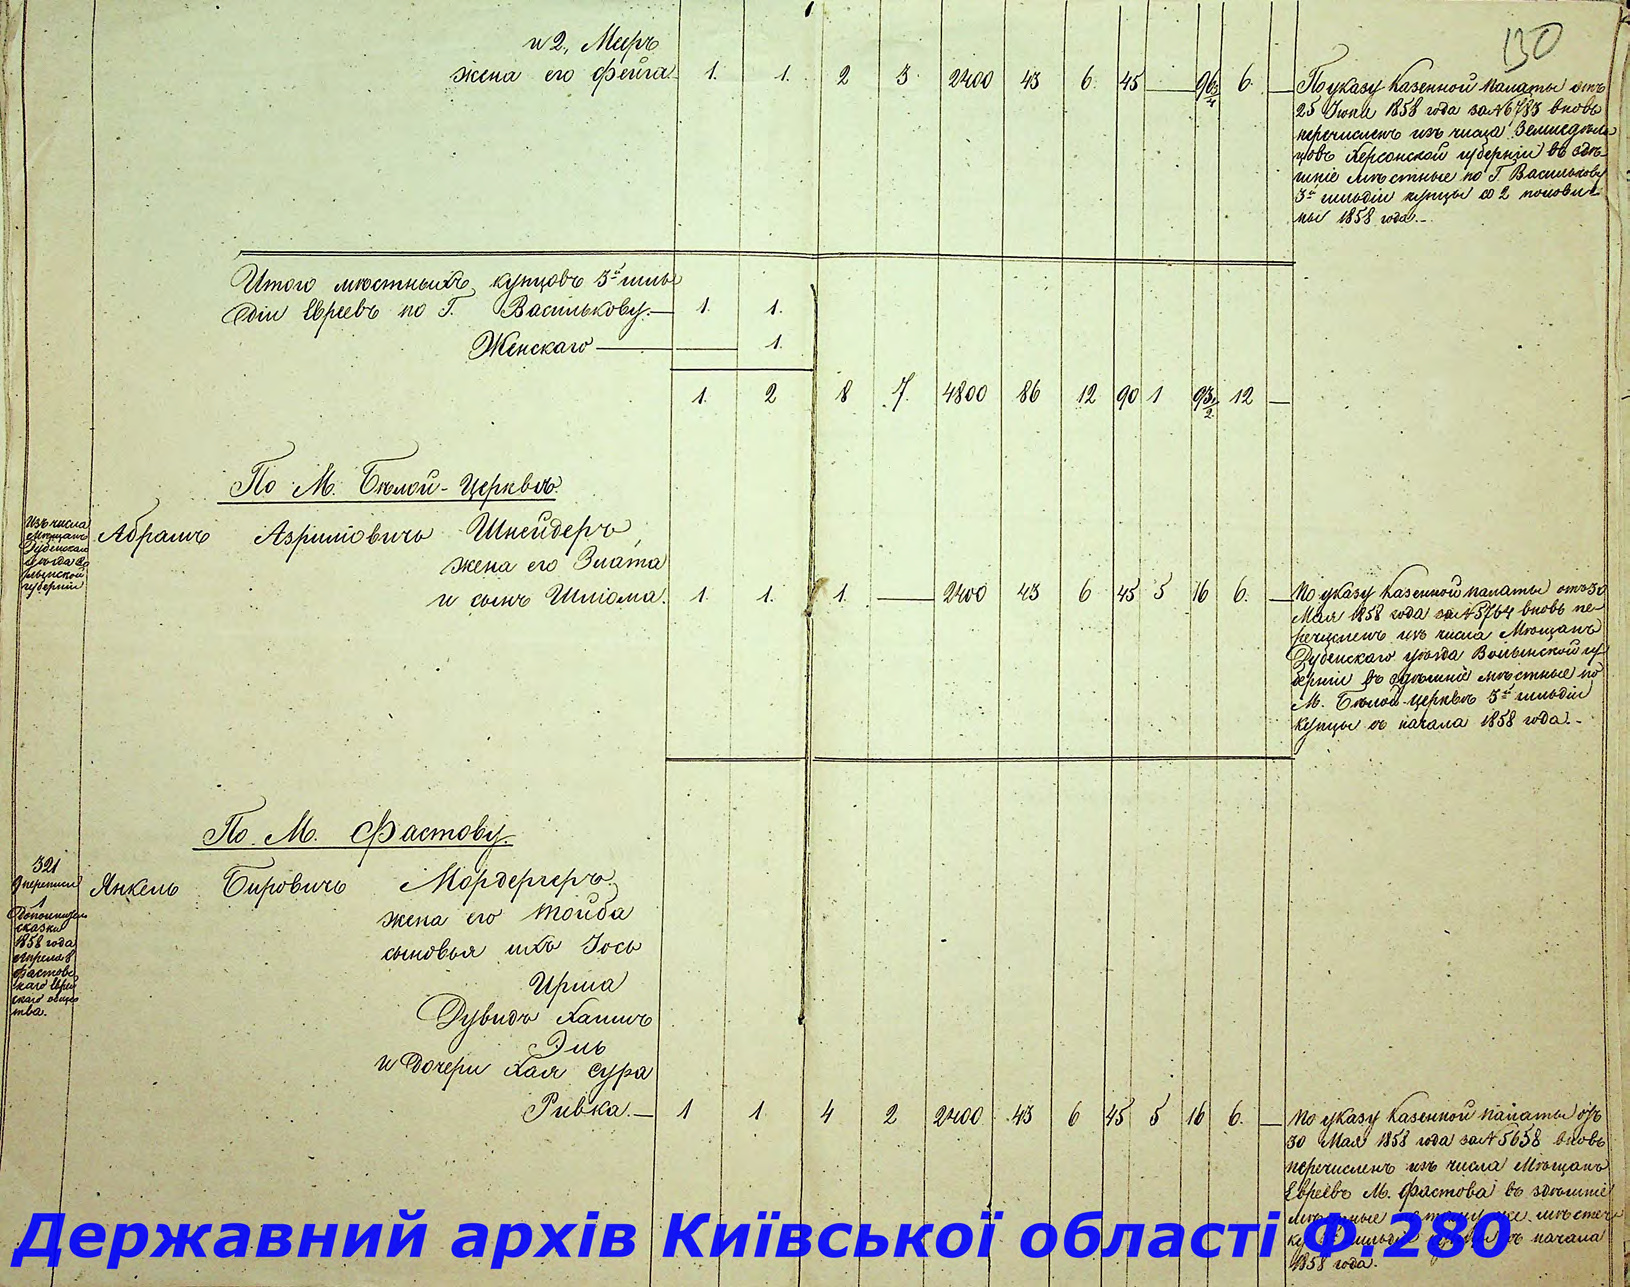 130
и 2, Меръ
жена его Фейга 1. 1. 2 3. 2400 43 6. 45 — 96 3/4 6. —
По указу Казенной палаты отъ
25 Іюня 1858 года за №6783 вновь
перечисленъ изъ числа Земледѣль
цовъ Херсонской губерніи въ здѣ-
шніе мѣстные по Г. Василькову
3й гильдіи купцы со 2 полови-
ны 1858 года.-
Итого мѣстныхъ купцовъ 3й гиль
діи Евреевъ по Г. Василькову.— 1. 1.
Женскаго — 1.
1. 2 8 7. 4800 86 12 90 1 93 1/2 12 —
По М. Бѣлой-Церквѣ.
Изъ числа
Мѣщанъ
Дубенскаго
уѣзда Во
лынской
губерніи
Абрамъ Азриліовичъ Шнейдеръ
жена его Злата
и сынъ Шліома. 1. 1. 1. — 2400 43 6 45 5 16 6. —
По указу Казенной палаты отъ 30
Мая 1858 года за №5764 вновь пе-
речисленъ изъ числа Мѣщанъ
Дубенскаго уѣзда Волынской гу
берніи въ здѣшніе мѣстные по
М. Бѣлой-Церквѣ 3й гильдіи
купцы съ начала 1858 года.-
По М. Фастову.
321
9 переписи
1
Дополнител
сказки
1858 года
апреля 8
Фастовс
каго Еврей
скаго общес
тва.
Янкель Беровичъ Мордергеръ.
жена его Тойба
сыновья ихъ Іось
Ирша
Дувидъ Хаимъ
Эль
и дочери Хая Сура
Ривка.— 1 1. 4 2 2400 43 6 45 5 16 6. —
По указу Казенной палаты отъ
30 Мая 1858 года за №5658 вновь
перечисленъ изъ числа Мѣщанъ
Евреевъ М. Фастова въ здѣшніе
мѣстные по тому же местеч
ку 3й гильдіи купцы съ начала
1858 года.
Державний архів Київської області Ф.280